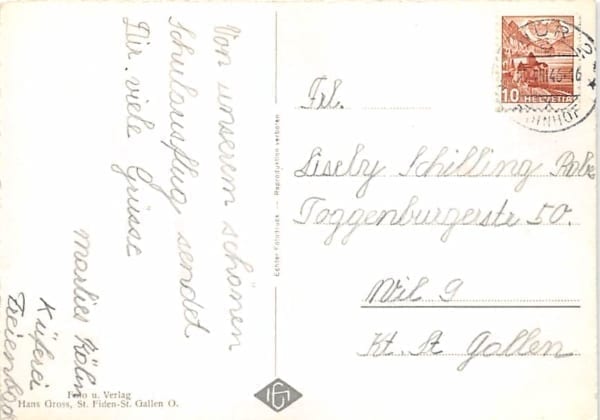 Von unserem schönen
Schulausflug sendet
Dir viele Grüsse
Marlies Köhn
Küferei
Freienbach
Foto u. Verlag
Hans Gross, St. Fiden-St. Gallen O.
Echter Fotodruck — Reproduktion verboten
Frl.
Liseby Schilling
Toggenburgerstr 50.
Wil 9
Kt. St Gallen
10 HELVETIA